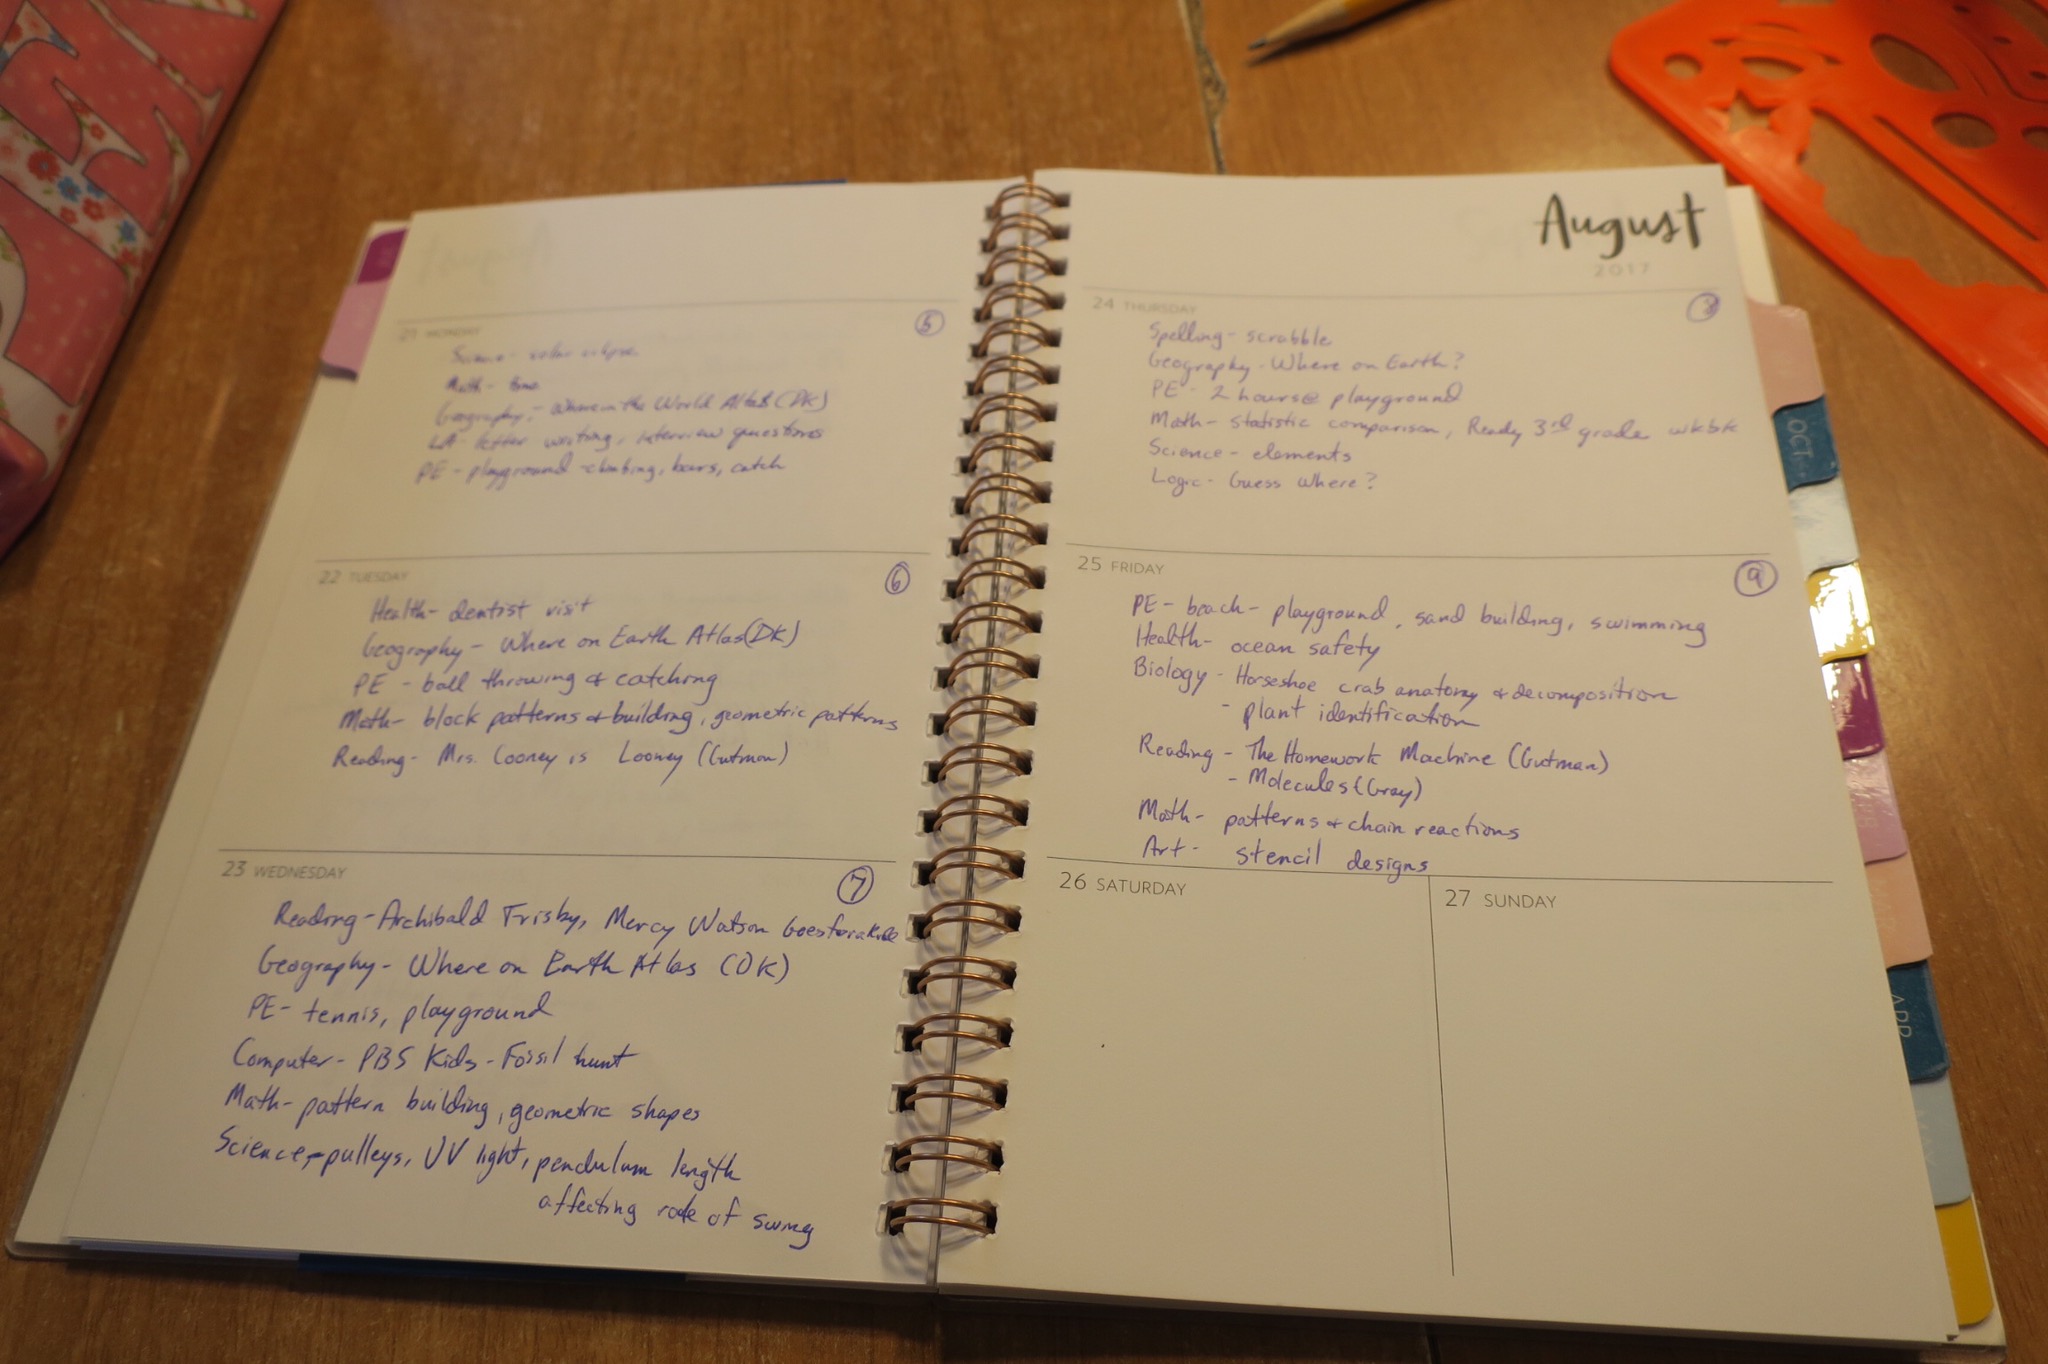 21 MONDAY
5
Science - solar eclipse
Math - time
Geography - Where in the World Atlas (DK)
LA - letter writing, interview questions
PE - playground - climbing, bars, catch
22 TUESDAY
6
Health - dentist visit
Geography - Where on Earth Atlas (DK)
PE - ball throwing & catching
Math - block patterns & building, geometric patterns
Reading - Mrs. Cooney is Looney (Gutman)
23 WEDNESDAY
7
Reading - Archibald Frisby, Mercy Watson Goes for a Ride
Geography - Where on Earth Atlas (DK)
PE - tennis, playground
Computer - PBS Kids - Fossil hunt
Math - pattern building, geometric shapes
Science - pulleys, UV light, pendulum length
affecting rate of swing
August
2017
24 THURSDAY
8
Spelling - scrabble
Geography - Where on Earth?
PE - 2 hours @ playground
Math - statistic comparison, Ready 3rd grade wkbk
Science - elements
Logic - Guess Where?
25 FRIDAY
9
PE - beach - playground, sand building, swimming
Health - ocean safety
Biology - Horseshoe crab anatomy & decomposition
- plant identification
Reading - The Homework Machine (Gutman)
- Molecules (Gray)
Math - patterns & chain reactions
Art - stencil designs
26 SATURDAY
27 SUNDAY
OCT
APR